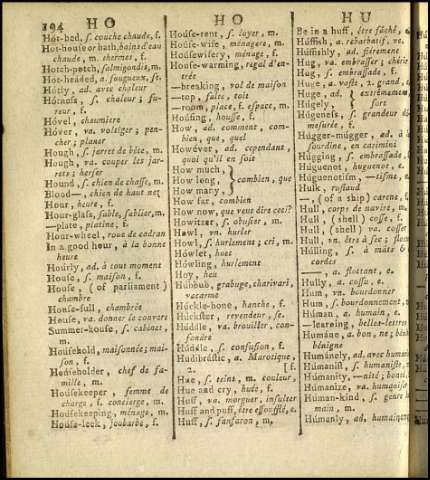 194
HO
HO
HU
Hót-bed, ſ. couche chaude, f.
Hot-houſe or bath, bains d'eau
chaude, m. thermes, f.
Hotch-potch, ſalmigondis, m.
Hot-headed, a. fougueux, ſe.
Hótly, ad. avec chaleur
Hótneſs, ſ. chaleur; fu-
reur, f.
Hóvel, chaumiere
Hóver, va. voltiger; pen-
cher, planer
Hough, ſ. jarret de bête, m.
Hough, va. couper les jar-
rets; herſer
Hound, ſ. chien de chaſſe, m.
Blood—, chien de haut nez
Hour, heure, f.
Hour-glaſs, ſable, ſablier, m.
—plate, platine, f.
Hour-wheel, roue de cadran
In a good hour, à la bonne
heure
Hourly, ad. à tout moment
Houſe, ſ. maiſon, f.
Houſe, (of parliament)
chambre
Houſe-full, chambrée
Houſe, va. donner le couvert
Summer-houſe, ſ. cabinet,
m.
Houſehold, maiſonnée; mai-
ſon, f.
Houſeholder, chef de fa-
mille, m.
Houſekeeper, femme de
charge, f. concierge, m.
Houſekeeping, ménage, m.
Houſe-leek, joubarbe, f.
Houſe-rent, ſ. loyer, m.
Houſe-wife, ménagere, m.
Houſewifery, ménage, f.
Houſe-warming, régal d'en-
trée
—breaking, vol de maiſon
—top, faîte, toit
—room, place, f. eſpace, m.
Houſing, houſſe, f.
How, ad. comment, com-
bien, que, quel
Howéver, ad. cependant,
quoi qu'il en ſoit
How much,
How long,
How many, } combien, que
How far, combien
How now, que veut dire ceci?
Howitzer, ſ. obuſier, m.
Howl, vn. hurler
Howl, ſ. hurlement; cri, m.
Hówlet, huet
Hówling, hurlement
Hoy, heu
Húbbub, grabuge, charivari,
vacarme
Húckle-bone, hanche, f.
Húckſter, revendeur, ſe.
Húddle, va. brouiller, con-
fondre
Húddle, ſ. confuſion, f.
Hudibráſtic, a. Marotique,
2. [f.
Hue, ſ. teint, m. couleur,
Hue and cry, huée, f.
Huff, va. morguer, inſulter
Huff and puff, être eſſoufflé, e.
Huff, ſ. fanfaron; m,
Be in a huff, être fâché, e
Húffiſh, a. rébarbatif, ve.
Húffiſhly, ad. fiérement
Hug, va. embraſſer; chérir
Hug, ſ. embraſſade, f.
Huge, a. vaſte, 2. g
Huge, ad.
Húgely, } extrêmement,
fort
Húgeneſs, ſ. grandeur dé-
meſurée, f.
Húgger-mugger, ad. à la
ſourdine, en catimini
Húgging, ſ. embraſſade, f
Húguenot, huguenot, e.
Húguenotiſm, —tiſme,
Hulk, ruſtaud
—, (of a ship) carene,
Hull, corps de navire, m.
Hull, (shell) coſſe, f.
Hull, (shell) va. coſſer
Hull, vn. être à ſec; flott
Húlling, ſ. à mâts &
cordes
—, a. flottant, e.
Hully, a. coſſu, e.
Hum, vn. bourdonner
Hum, ſ. bourdonnement,
Húman, a. humain, e.
—learning, belles-lettres
Humáne, a. bon, ne; bén
bénigne
Humánely, ad. avec humani
Húmaniſt, ſ. humaniſte,
Humánity, —nité; bonté,
Húmanize, va. humaniſe
Human-kind, ſ. genre hu
main, m.
Humanly, ad. humainem